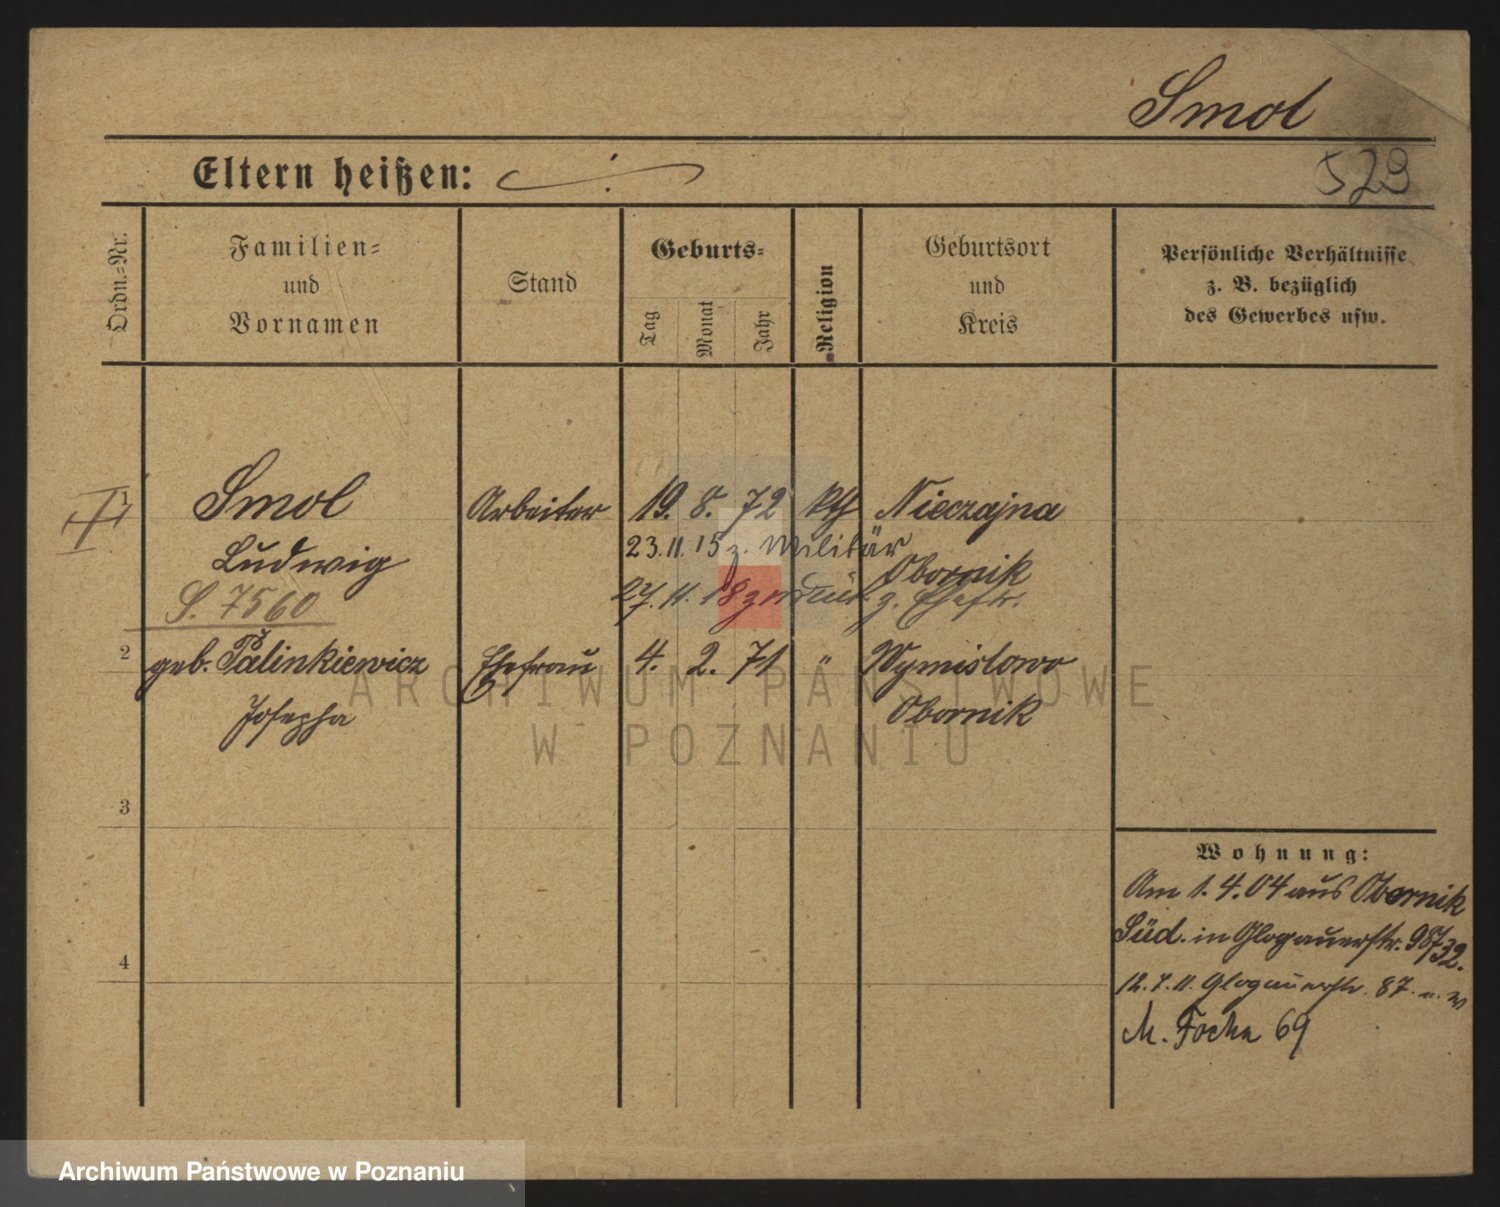 Smol
Eltern heißen:
529
Ordn.=Nr.
Familien=
und
Vornamen
Stand
Geburts=
Tag
Monat
Jahr
Religion
Geburtsort
und
Kreis
Persönliche Verhältnisse
z. B. bezüglich
des Gewerbes usw.
1 Smol Arbeiter 19. 8. 72 kth Nieczajna
Ludwig 23.11.15 z. Militär Obornik
S. 7560 27. 11. 18 zurück z. Ehefr.
2 geb. Palinkiewicz Ehefrau 4. 2. 71 " Wymislowo
Josepha Obornik
3
4
Wohnung:
Am 1. 4. 04 aus Obornik
Süd. in Glogauerstr. 98/32.
12.7.11. Glogauerstr. 87.
M. Focha 69
ARCHIWUM PAŃSTWOWE
W POZNANIU
Archiwum Państwowe w Poznaniu